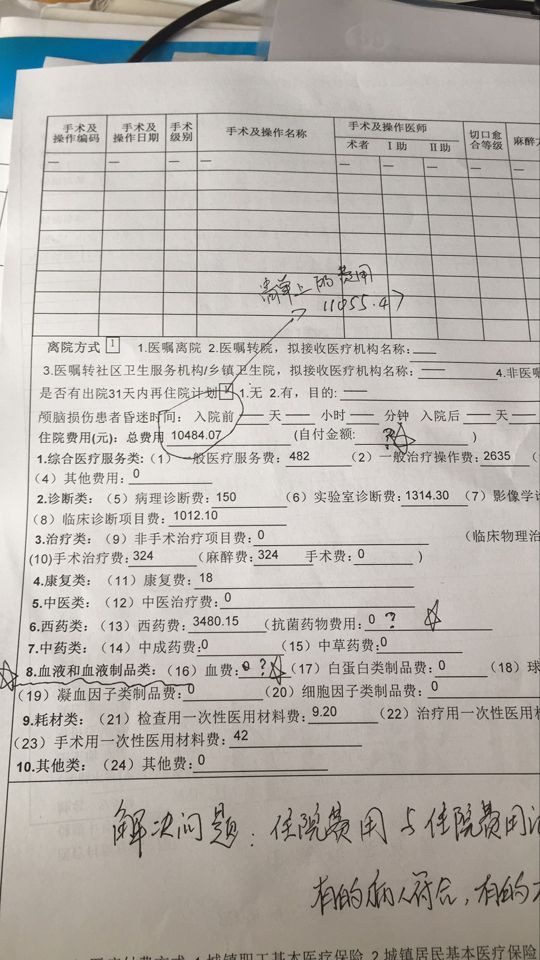 手术及操作编码 手术及操作日期 手术级别 手术及操作名称 手术及操作医师 切口愈合等级 麻醉
术者 I 助 II 助
— — — — — — — — —
清单上的费用
11055.47
离院方式 1 1.医嘱离院 2.医嘱转院，拟接收医疗机构名称：—
3.医嘱转社区卫生服务机构/乡镇卫生院，拟接收医疗机构名称：— 4.非医嘱
是否有出院31天内再住院计划 1.无 2.有，目的：—
颅脑损伤患者昏迷时间： 入院前 — 天 — 小时 — 分钟 入院后 — 天
住院费用(元)：总费用 10484.07 (自付金额： ? )
1.综合医疗服务类：（1）一般医疗服务费：482 （2）一般治疗操作费：2635 （
（4）其他费用：0
2.诊断类：（5）病理诊断费：150 （6）实验室诊断费：1314.30 （7）影像学
（8）临床诊断项目费：1012.10
3.治疗类：（9）非手术治疗项目费：0 （临床物理治
(10)手术治疗费：324 （麻醉费：324 手术费：0 ）
4.康复类：（11）康复费：18
5.中医类：（12）中医治疗费：0
6.西药类：（13）西药费：3480.15 （抗菌药物费用：0 ?
7.中药类：（14）中成药费:0 （15）中草药费：0
8.血液和血液制品类：（16）血费：0 ? （17）白蛋白类制品费：0 （18）球
（19）凝血因子类制品费：0 （20）细胞因子类制品费：0
9.耗材类：（21）检查用一次性医用材料费：9.20 （22）治疗用一次性医用材
（23）手术用一次性医用材料费：42
10.其他类：（24）其他费：0
解决问题：住院费用与住院费用
有的病人符合，有的
医疗付费方式 1.城镇职工基本医疗保险 2.城镇居民基本医疗保险